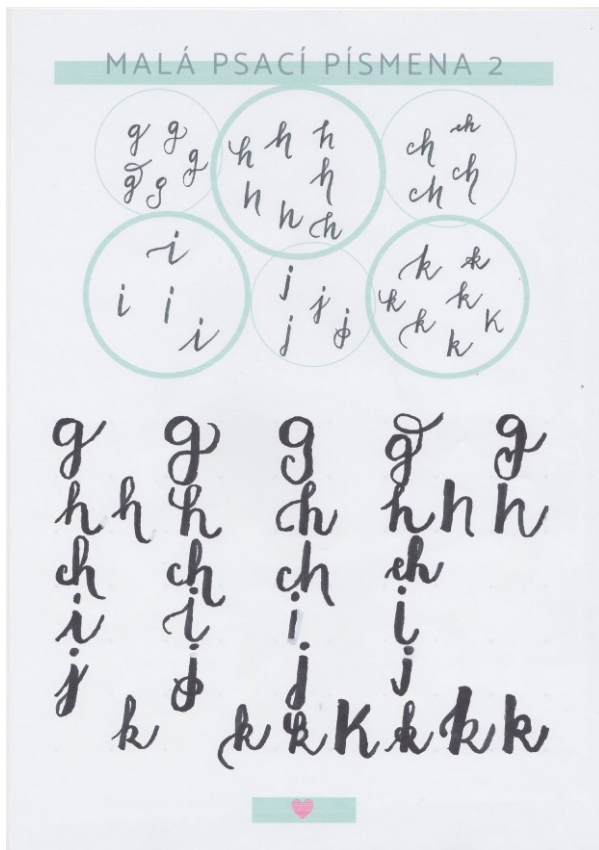 MALÁ PSACÍ PÍSMENA 2
g g g g g
h h h h h h h
ch ch ch ch
i i i i
j j j j
k k k k k k k
g g g g g
h h h h h h h
ch ch ch ch
i i i i
j j j j
k k k K k k k